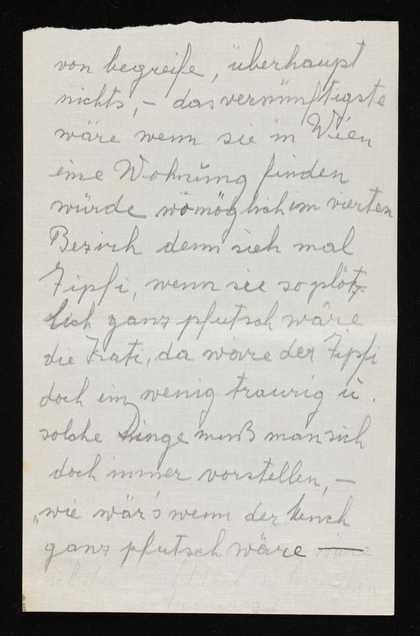 von begreife, überhaupt
nichts, – das vernünftigste
wäre wenn sie in Wien
eine Wohnung finden
würde womöglich im vierten
Bezirk denn sieh mal
Zipfi, wenn sie so plötz-
lich ganz pfutsch wäre
die Kati, da wäre der Zipfi
doch ein wenig traurig u.
solche Dinge muß man sich
doch immer vorstellen, –
„wie wär's wenn der
ganz pfutsch wäre —